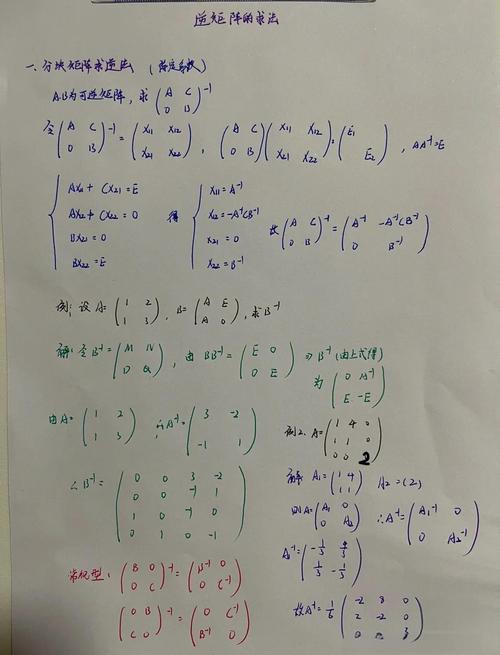 逆矩阵的求法
一、分块矩阵求逆法 (待定系数)
A.B为可逆矩阵，求 (A C; 0 B)⁻¹
令 (A C; 0 B)⁻¹ = (X₁₁ X₁₂; X₂₁ X₂₂)，(A C; 0 B)(X₁₁ X₁₂; X₂₁ X₂₂) = (E₁; E₂)，AA⁻¹=E
AX₁₁ + CX₂₁ = E X₁₁ = A⁻¹
AX₁₂ + CX₂₂ = 0 得 X₁₂ = -A⁻¹CB⁻¹ 故 (A C; 0 B)⁻¹ = (A⁻¹ -A⁻¹CB⁻¹; 0 B⁻¹)
BX₂₁ = 0 X₂₁ = 0
BX₂₂ = E X₂₂ = B⁻¹
例：设 A = (1 2; 1 3)，B = (A E; A 0)，求 B⁻¹
解：令 B⁻¹ = (M N; D Q)，由 BB⁻¹ = (E 0; 0 E) ⇒ B⁻¹ (由上式得)
为 (0 A⁻¹; E -E)
由 A = (1 2; 1 3) ∴A⁻¹ = (3 -2; -1 1)
∴B⁻¹ = (0 0 3 -2; 0 0 -1 1; 1 0 -1 0; 0 1 0 -1)
常化型：(B 0; 0 C)⁻¹ = (B⁻¹ 0; 0 C⁻¹)
(0 B; C 0)⁻¹ = (0 C⁻¹; B⁻¹ 0)
例2. A = (1 4 0; 1 1 0; 0 0 2)
解 A₁ = (1 4; 1 1) A₂ = (2)
则 A = (A₁ 0; 0 A₂) ∴A⁻¹ = (A₁⁻¹ 0; 0 A₂⁻¹)
A₁⁻¹ = (-1/3 4/3; 1/3 -1/3)
故 A⁻¹ = 1/6 (-2 8 0; 2 -2 0; 0 0 3)